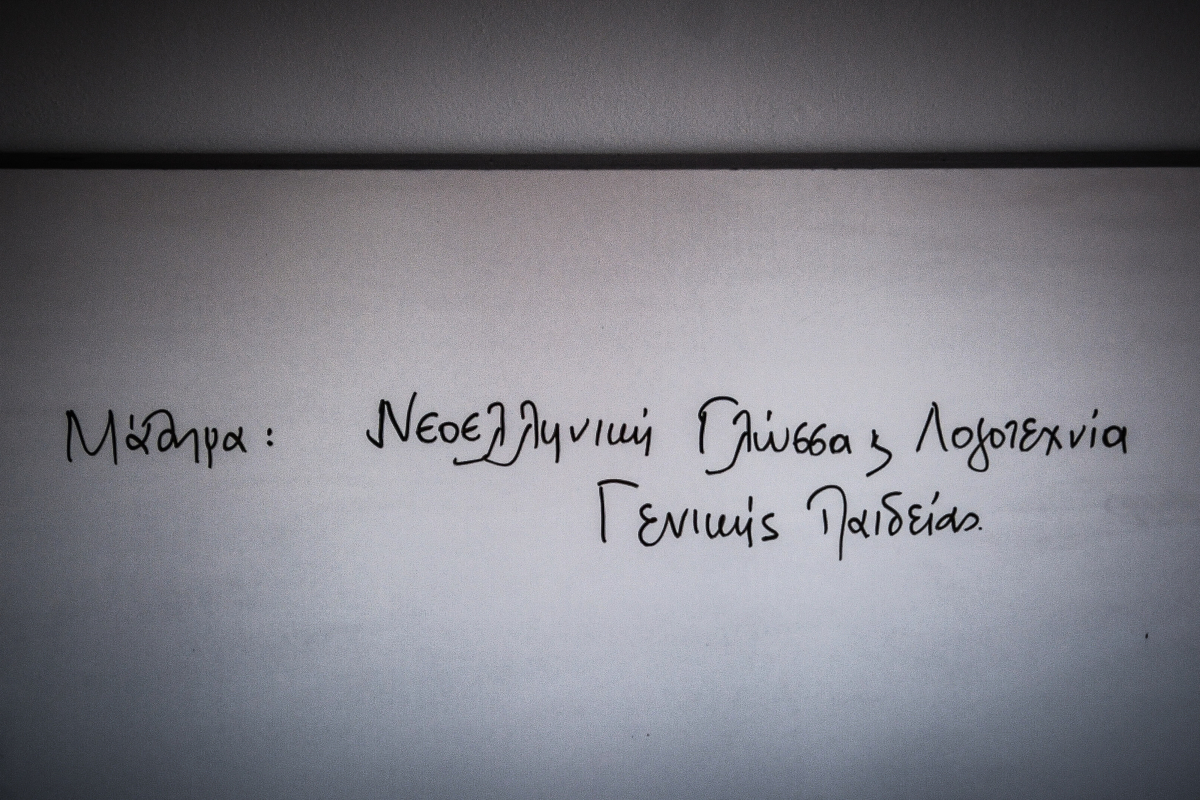 Μάθημα: Νεοελληνική Γλώσσα & Λογοτεχνία
Γενικής Παιδείας.